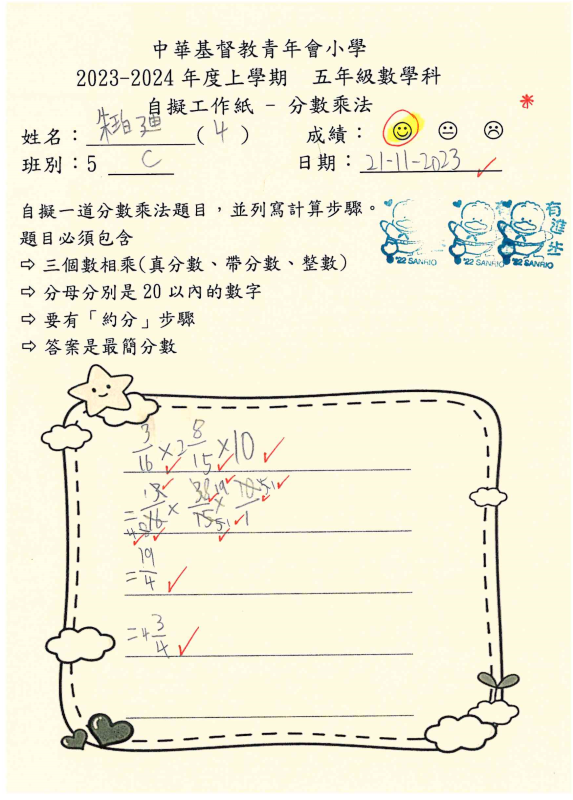 中華基督教青年會小學
2023-2024 年度上學期 五年級數學科
自擬工作紙 - 分數乘法
姓名：朱珀廸(4) 成績：
班別：5 C 日期：21-11-2023
自擬一道分數乘法題目，並列寫計算步驟。
有進步
'22 SANRIO '22 SANRIO '22 SANRIO
題目必須包含
⇨ 三個數相乘(真分數、帶分數、整數)
⇨ 分母分別是 20 以內的數字
⇨ 要有「約分」步驟
⇨ 答案是最簡分數
3/16 × 2 8/15 × 10
= 3/16 × 38/15 × 10/1
= 19/4
= 4 3/4